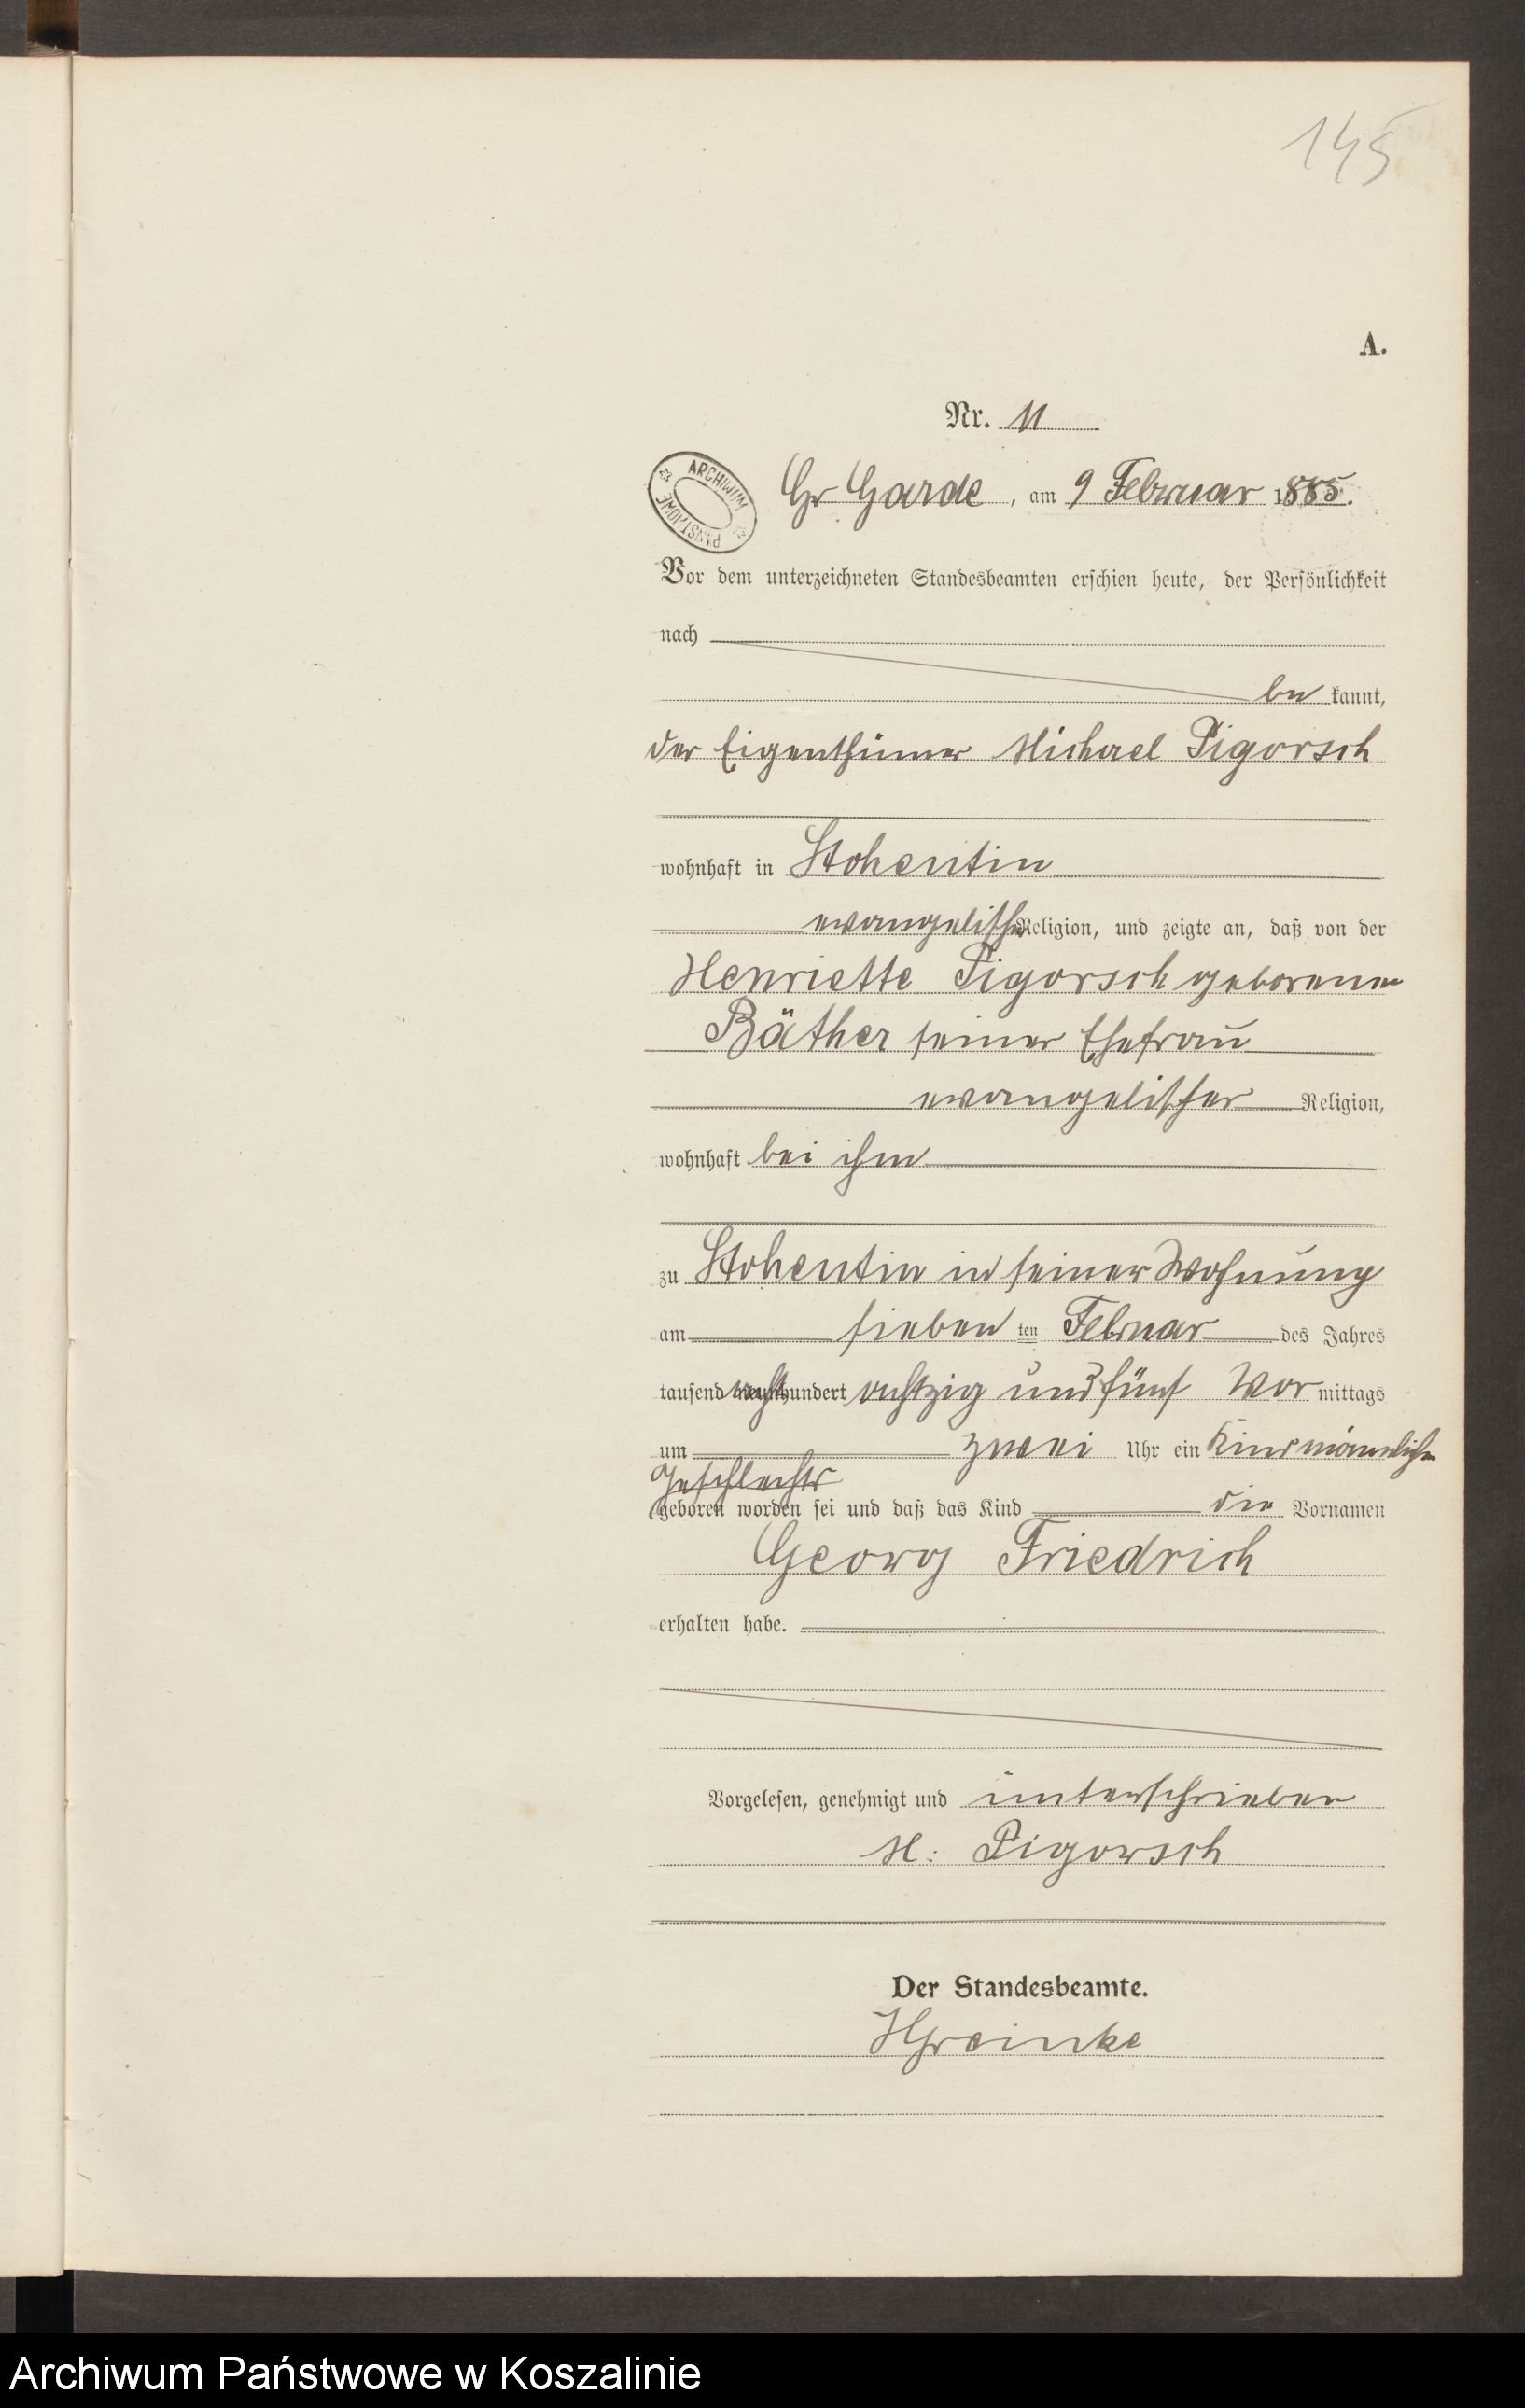 145
A.
Nr. 11
ARCHIWUM PAŃSTWOWE
Gr Garde, am 9 Februar 1885.
Vor dem unterzeichneten Standesbeamten erschien heute, der Persönlichkeit
nach
be kannt,
der Eigenthümer Michael Pigorsch
wohnhaft in Stohentin
evangelischer Religion, und zeigte an, daß von der
Henriette Pigorsch geborenen
Bäther seiner Ehefrau
evangelischer Religion,
wohnhaft bei ihm
zu Stohentin in seiner Wohnung
am sieben ten Februar des Jahres
tausend acht hundert achtzig und fünf Vor mittags
um zwei Uhr ein Kind männlichen
Geschlechts
geboren worden sei und daß das Kind die Vornamen
Georg Friedrich
erhalten habe.
Vorgelesen, genehmigt und unterschrieben
M: Pigorsch
Der Standesbeamte.
Archiwum Państwowe w Koszalinie